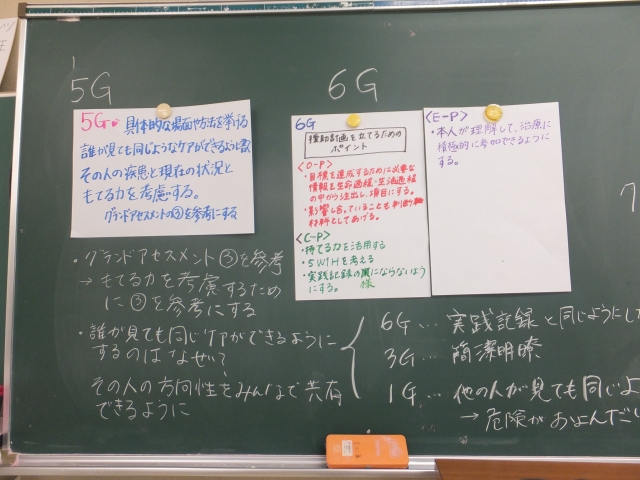 5G
5G 具体的な場面や方法を挙げる
誰が見ても同じようなケアができるように
その人の疾患と現在の状況と
もてる力を考慮する。
グランドアセスメントの③を参考にする
・グランドアセスメント③を参考
→もてる力を考慮するため
に③を参考にする
・誰が見ても同じケアができるように
するのはなぜ?
その人の方向性をみんなで共有
できるように
6G
6G
援助計画を立てるための
ポイント
<O-P>
・目標を達成するために必要な
情報を生命過程・生活過程
の中から注出し、項目にする。
・影響し合っていることも判断
材料としてあげる。
<C-P>
・持てる力を活用する
・5W1Hを考える
・実践記録の裏にならないよう
にする。 様
<E-P>
・本人が理解して、治療に
積極的に参加できるように
する。
6G… 実践記録と同じようにした
3G… 簡潔明瞭
1G… 他の人が見ても同じよ
→危険がおよんだし